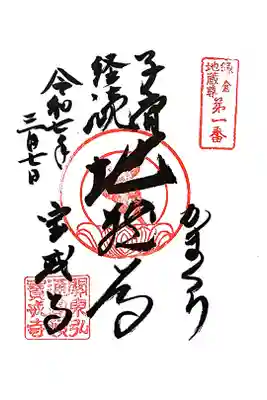 鎌倉
地蔵尊
第一番
かまくら
子育
経読
地蔵尊
宝戒寺
寶戒寺
令和七年
三月七日